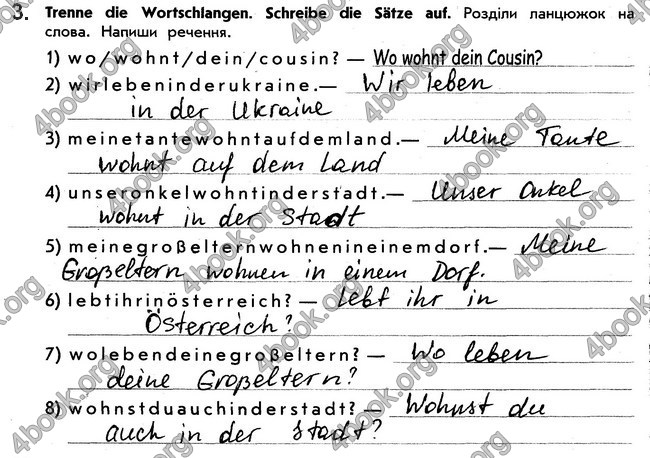 3. Trenne die Wortschlangen. Schreibe die Sätze auf. Розділи ланцюжок на
слова. Напиши речення.
1) wo/wohnt/dein/cousin? — Wo wohnt dein Cousin?
2) wirlebeninderukraine.— Wir leben
in der Ukraine
3) meinetantewohntaufdemland.— Meine Tante
wohnt auf dem Land
4) unseronkelwohntinderstadt.— Unser Onkel
wohnt in der Stadt
5) meinegroßelternwohnenineinemdorf.— Meine
Großeltern wohnen in einem Dorf.
6) lebtihrinösterreich? — Lebt ihr in
Österreich?
7) wolebendeinegroßeltern? — Wo leben
deine Großeltern?
8) wohnstduauchinderstadt? — Wohnst du
auch in der Stadt?
4book.org